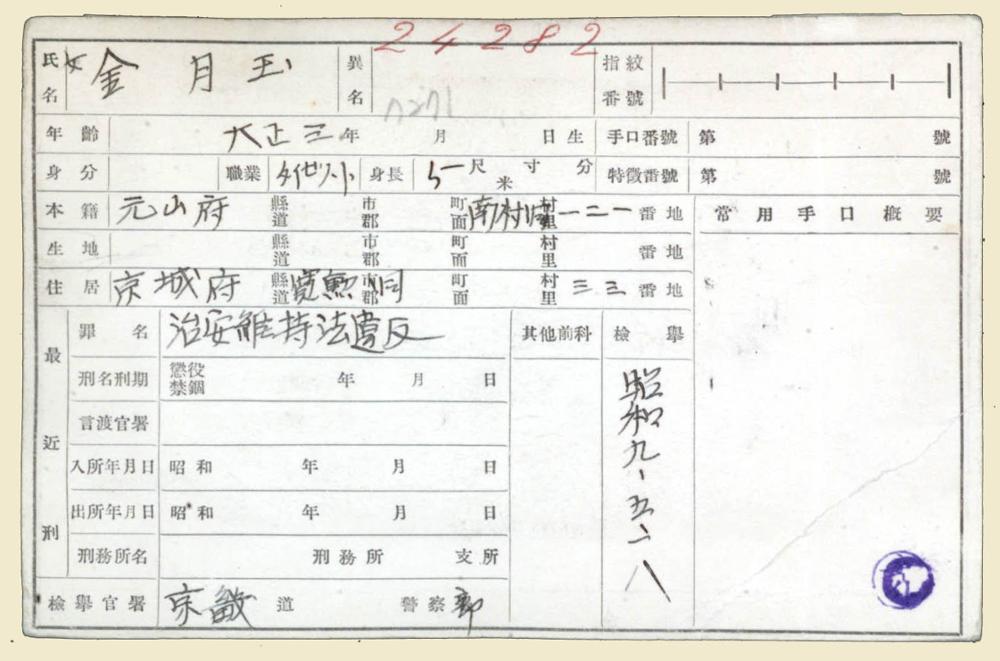 24282
氏名 女 金月玉 異名 指紋番號
7271
年齡 大正三年 月 日生 手口番號 第 號
身分 職業 タイピスト 身長 5一尺 寸 分 米 特徵番號 第 號
本籍 元山府 縣道 市郡 町面 南村洞 村里 一二一 番地 常用手口概要
生地 縣道 市郡 町面 村里 番地
住居 京城府 縣道 寬勳洞 市郡 町面 村里 三三 番地
最近刑
罪名 治安維持法違反 其他前科 檢擧
刑名刑期 懲役禁錮 年 月 日
昭和九、五、二八
言渡官署
入所年月日 昭和 年 月 日
出所年月日 昭和 年 月 日
刑務所名 刑務所 支所
檢擧官署 京畿道 警察部